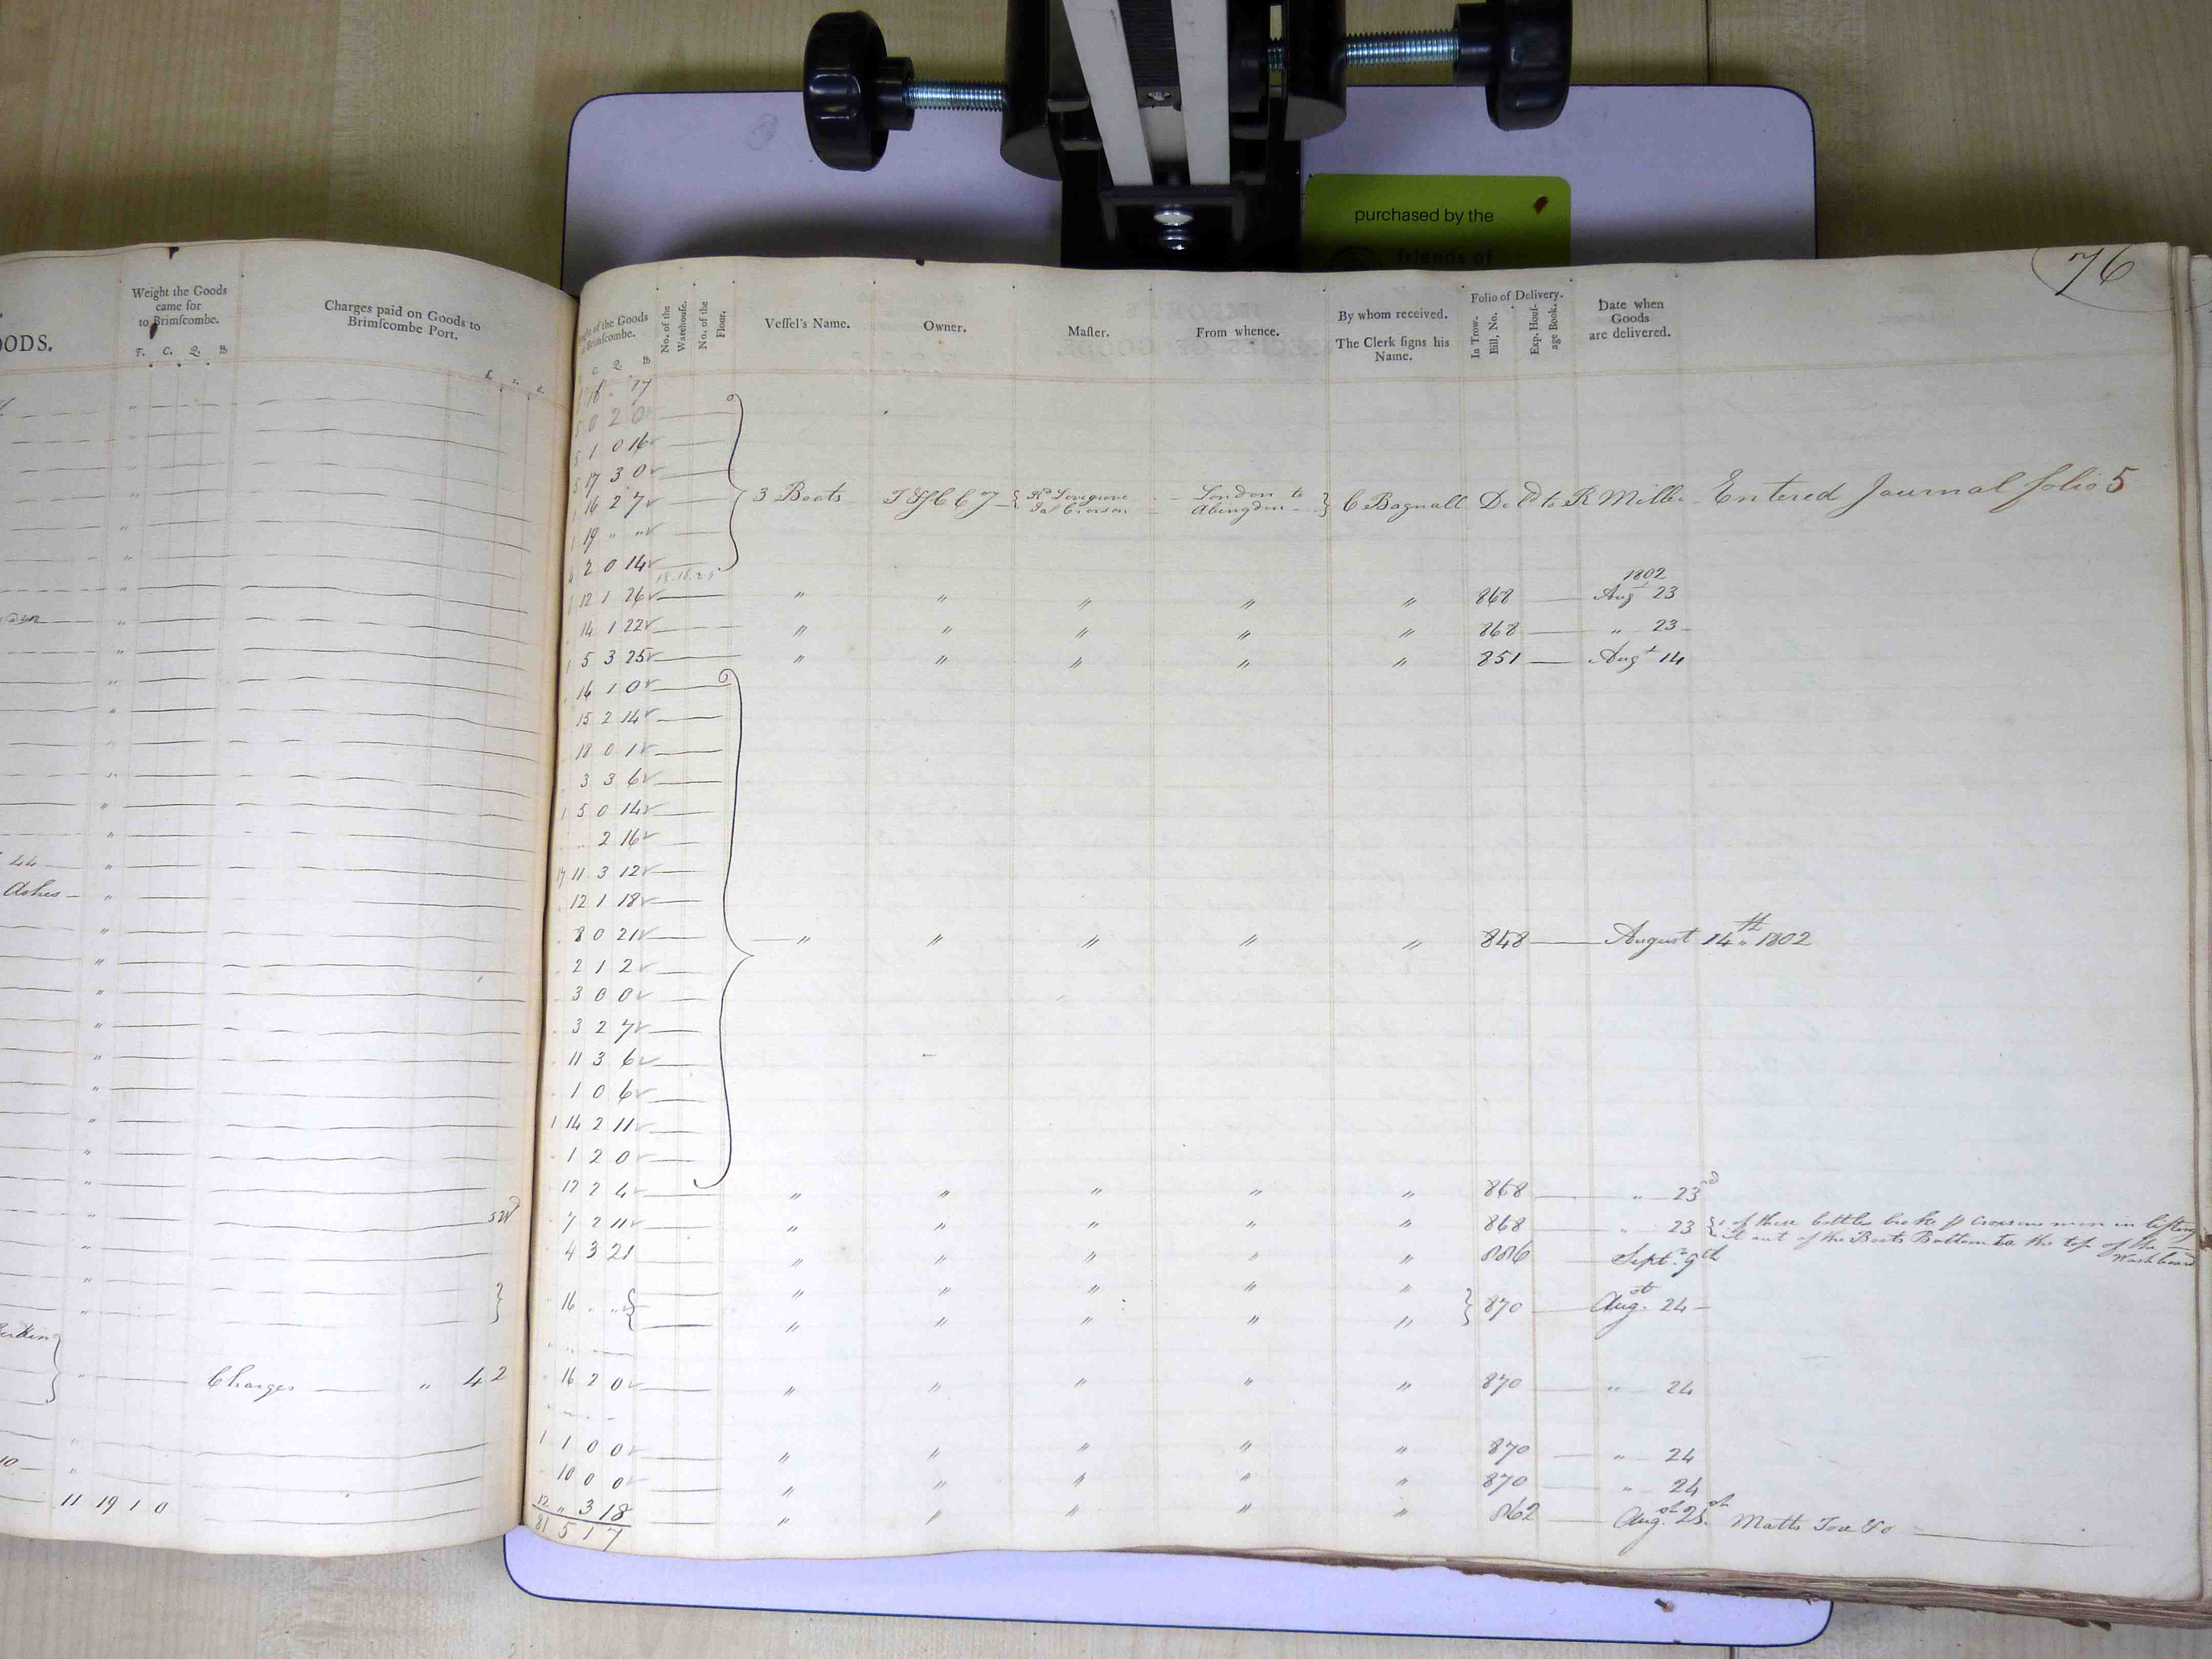 purchased by the
friends of
76
ODS.
Weight the Goods
came for
to Brimſcombe.
T. C. Q. lb
Charges paid on Goods to
Brimſcombe Port.
£. s. d.
44
Ashes
Charges " 4 2
10
11 19 1 0
of the Goods
Brimſcombe.
C. Q. lb
No. of the
Warehouſe.
No. of the
Floor.
Veſſel's Name.
Owner.
Maſter.
From whence.
By whom received.
The Clerk ſigns his
Name.
Folio of Delivery.
In Trow.
Bill, No.
Exp. Houſ-
age Book.
Date when
Goods
are delivered.
0 2 0
1 0 16
17 3 0
16 2 7
3 Boats
Rd Lovegrove
London to
Abingdon
C Bagnall Deld to R Miller Entered Journal folio 5
1 19 " "
2 0 14
1802
12 1 26 " " " " " 868 Augt 23
14 1 22 " " " " " 868 " 23
1 5 3 25 " " " " " 851 Augt 14
16 1 0
15 2 14
18 0 1
3 3 6
1 5 0 14
2 16
17 11 3 12
12 1 18
8 0 21 " " " " " 848 August 14th 1802
2 1 2
3 0 0
3 2 7
11 3 6
1 0 6
1 14 2 11
1 2 0
12 2 4 " " " " " 868 " 23rd
7 2 11 " " " " " 868 " 23 of these bottles broke p Crosons men in lifting
it out of the Boats Bottom to the top of the
Washboard
4 3 21 " " " " " 886 Septr 9th
16 " " " " " " " 870 Aug. 24
" " " " "
16 2 0 " " " " " 870 " 24
1 1 0 0 " " " " " 870 " 24
10 0 0 " " " " " 870 " 24
12 " 3 18 " " " " " 862 Augst 23 Matts
81 5 1 7